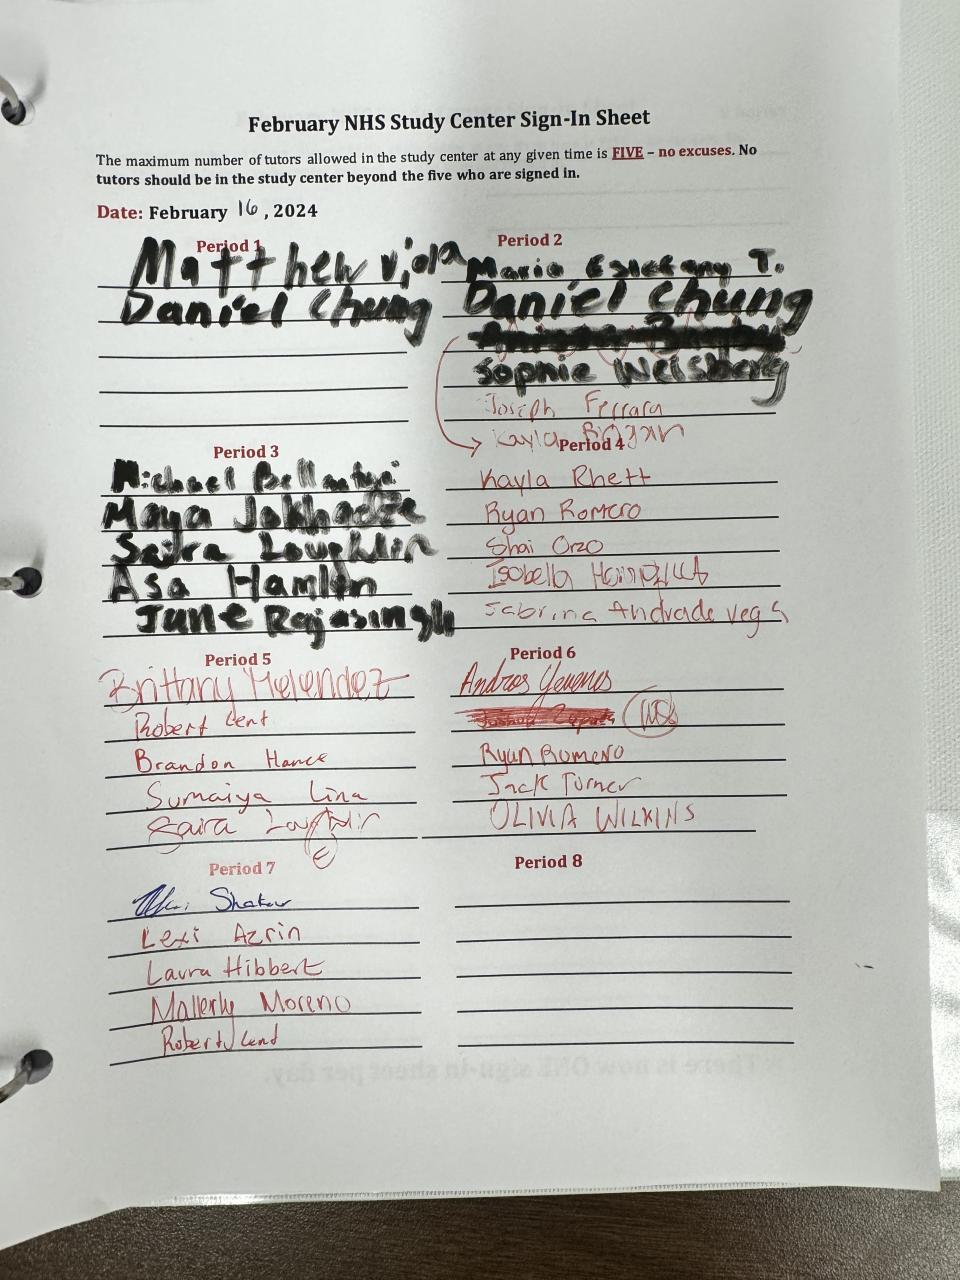 February NHS Study Center Sign-In Sheet
The maximum number of tutors allowed in the study center at any given time is FIVE – no excuses. No
tutors should be in the study center beyond the five who are signed in.
Date: February 16, 2024
Period 1
Matthew Viola
Daniel Chung
Period 2
Maria Estefany T.
Daniel Chung
Sophie Weisberg
Joseph Ferrara
Kayla
Period 3
Michael
Maya Jakhadze
Saira Loughlin
Asa Hamlin
June Rajasingh
Period 4
Kayla Rhett
Ryan Romero
Shai Orzo
Isabella
Sabrina Andrade Vega
Period 5
Brittany Melendez
Robert Lent
Brandon Hance
Sumaiya Lina
Saira Loughlin
Period 6
Andres
Ryan Romero
Jack Turner
OLIVIA WILKINS
Period 7
Lexi Azrin
Laura Hibbert
Mallerly Moreno
Robert Lent
Period 8
There is now ONE sign-in sheet per day.